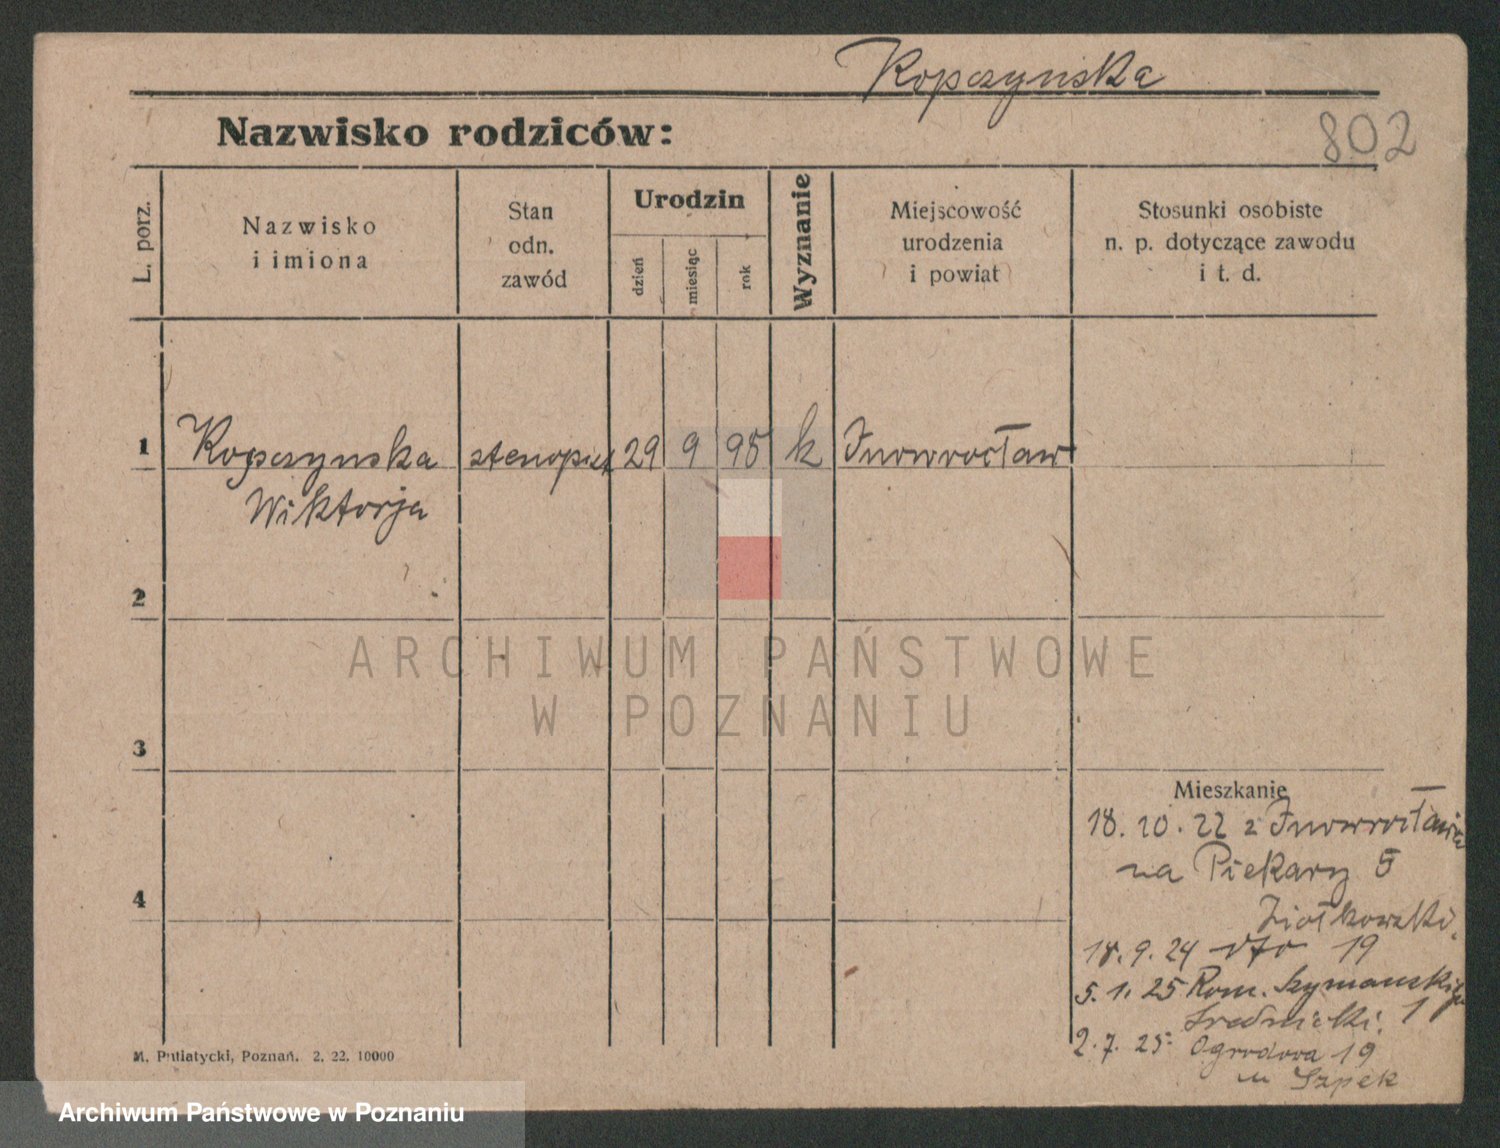 Kopczynska
Nazwisko rodziców:
802
L. porz.
Nazwisko
i imiona
Stan
odn.
zawód
Urodzin
dzień
miesiąc
rok
Wyznanie
Miejscowość
urodzenia
i powiat
Stosunki osobiste
n. p. dotyczące zawodu
i t. d.
1 Kopczynska stenopist 29 9 95 k Inowrocław
Wiktorja
2
3
Mieszkanie
18. 10. 22 z Inowrocławia
na Piekary 5
4
Ziołkowski.
18. 9. 24 dto 19
5. 1. 25 Rom. Szymanskiego 1
Srednicki.
2. 7. 25 Ogrodowa 19
u Szpek
M. Putiatycki, Poznań. 2. 22. 10000
ARCHIWUM PAŃSTWOWE
W POZNANIU
Archiwum Państwowe w Poznaniu